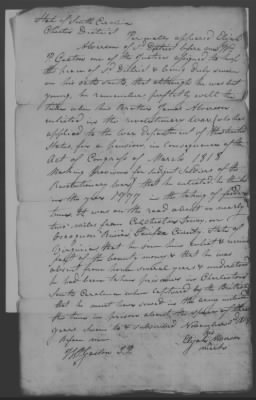 State of South Carolina
Chester District
Personally appeared Elijah
Alverson of sd District before me
Gaston one of the Justices assigned to keep
the peace of sd District & being duly sworn
on his oath saith, that although he was but
young, he remembers perfectly well the
time when his Brother James Alverson
enlisted in the revolutionary war (who has
applied to the war department of the United
States, for a pension, in consequence of the
Act of Congress of March 1818
Making provision for indigt soldiers of the
Revolutionary war) that he enlisted he thinks
in the year 1777 in the
time it was on the road about
two miles from
River County State of
Virginia that he saw him enlist & receive
part of the bounty money & that he was
absent from home several years & understood
he had been taken prisoner in Charleston
South Carolina when captured by the British
that he must have served in the army including
the time in prison about the space of three
years Sworn to & subscribed November 1819
Before me Elijah Alverson
Gaston J.P. his mark